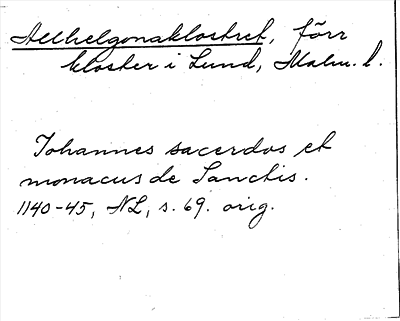 Allhelgonaklostret, förr
kloster i Lund, Malm. l.
Johannes sacerdos et
monacus de Sanctis.
1140-45, NL, s. 69. orig.